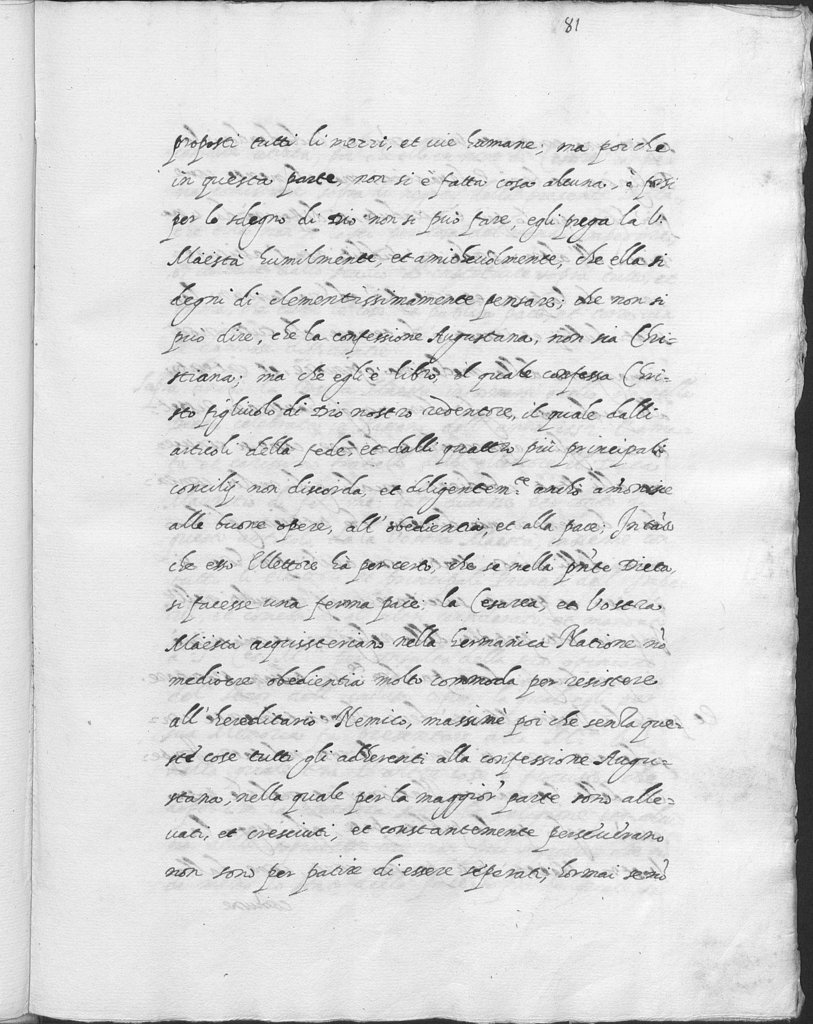 81
proposti tutti li mezzi, et vie humane; ma poi che
in questa parte, non si è fatta cosa alcuna, ò forsi
per lo sdegno di Dio non si può fare, egli prega la V.
Maestà humilmente, et amichevolmente, che ella si
degni di clementissimamente pensare; che non si
può dire, che la confessione Augustana, non sia Chri-
stiana; ma che egli è libro, il quale confessa Chri-
sto figliuolo di Dio nostro redentore, il quale dalli
articoli della fede, et dalli quattro più principali
concilij non discorda, et diligentem.te anche
alle buone opere, all'obedientia, et alla pace;
che esso Elettore hà per certo, che se nella pñte Dieta,
si facesse una ferma pace, la Cesarea, et Vostra
Maestà acquisteriano nella Germanica Natione nõ
mediocre obedientia molto commoda per resistere
all'hereditario Nemico, massime poi che senza que-
ste cose tutti gli adherenti alla confessione Augu-
stana, nella quale per la maggior parte sono alle-
vati, et cresciuti, et constantemente perseverano
non sono per patire di essere seperati; hormai se nõ